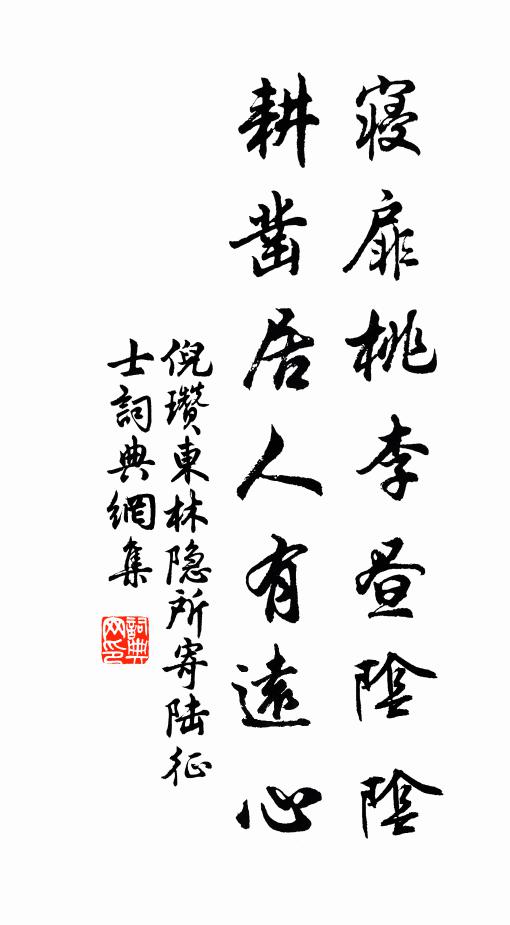 寢扉桃李昼陰陰
耕凿居人有遠心
倪瓚東林隐所寄陆征
士詞典網集
詞典
网印